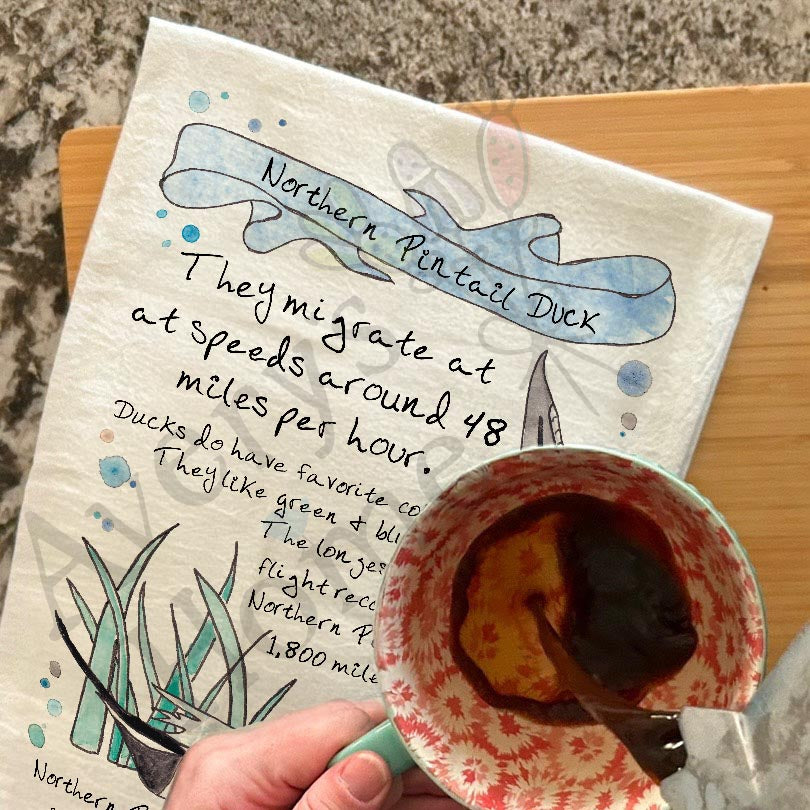 Northern Pintail Duck
They migrate at
at speeds around 48
miles per hour.
Ducks do have favorite co
They like green & blu
The longes
flight reco
Northern P
1,800 mile
Northern P